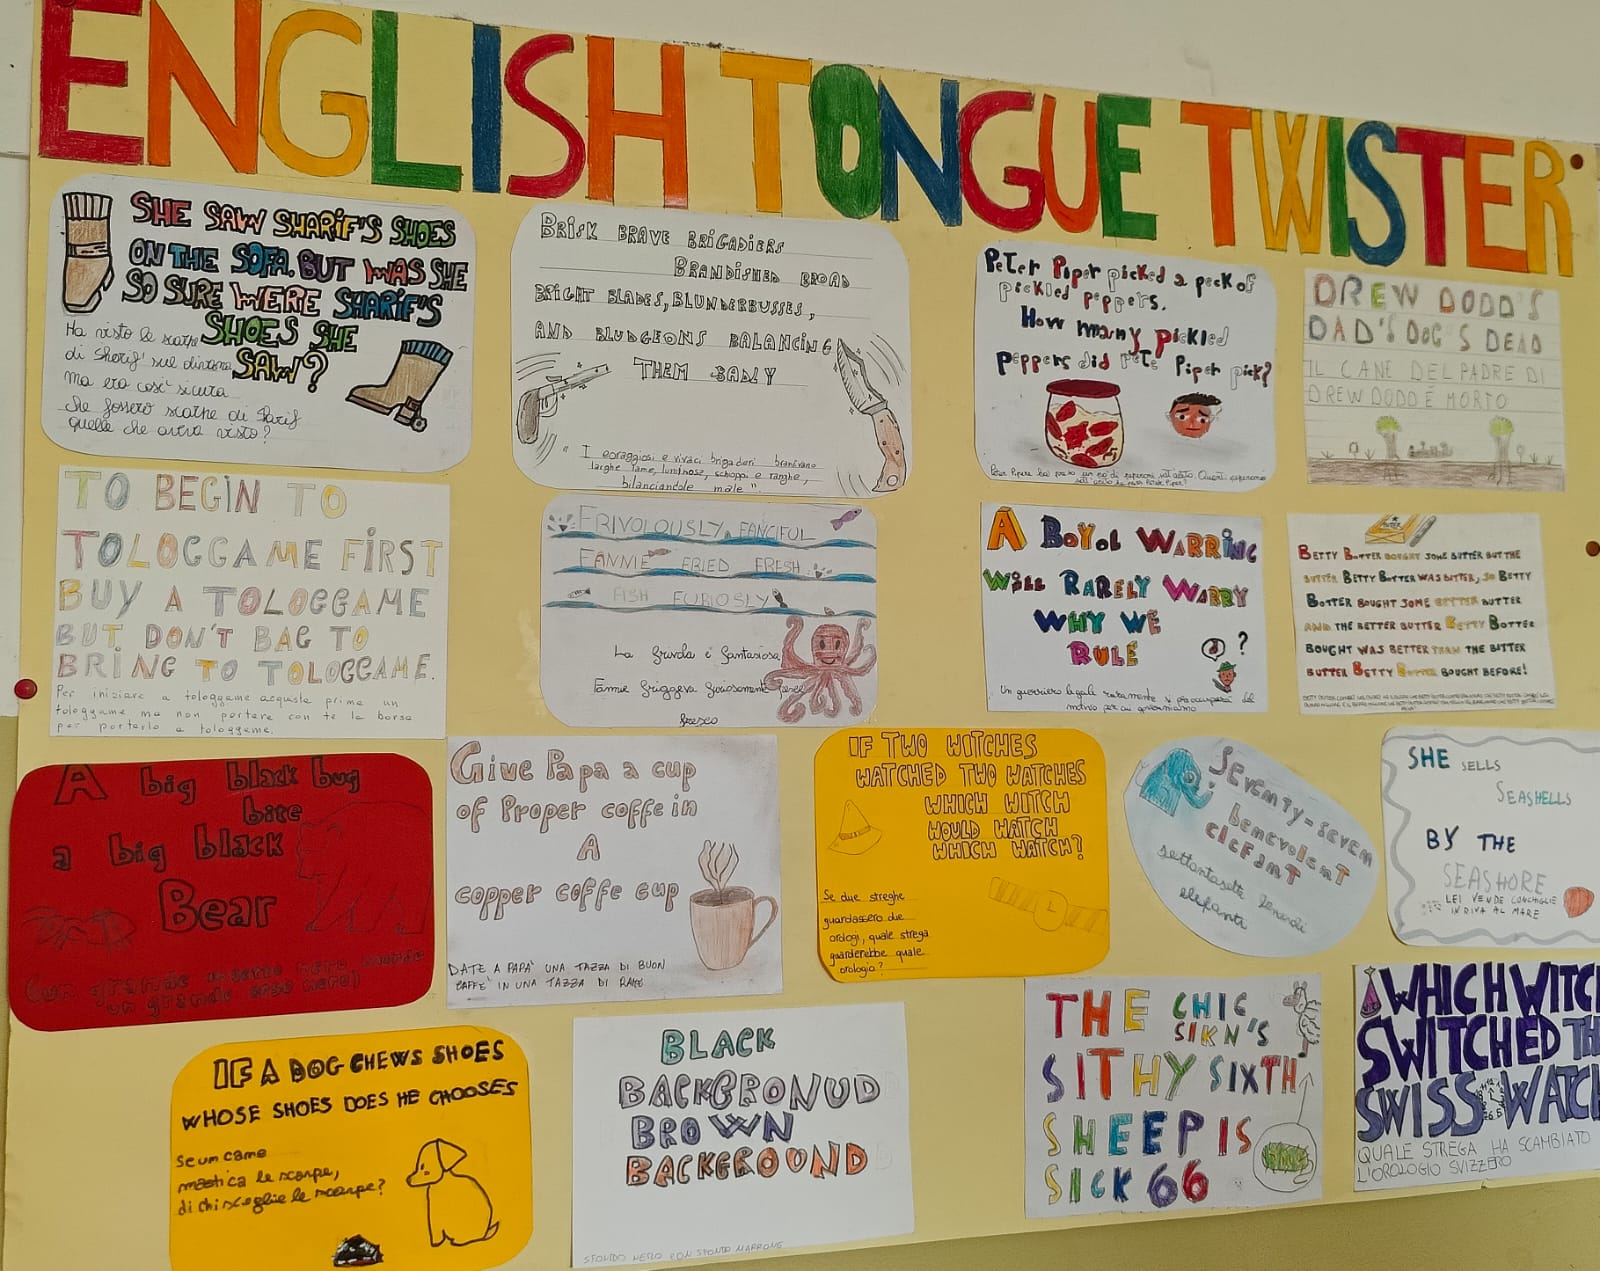 ENGLISH TONGUE TWISTER
SHE SAW SHARIF'S SHOES
ON THE SOFA. BUT WAS SHE
SO SURE WERE SHARIF'S
SHOES SHE
SAW?
Ha visto le scarpe
di Sherif sul divano
ma era così sicura
che fossero scarpe di Sharif
quelle che aveva visto?
BRISK BRAVE BRIGADIERS
BRANDISHED BROAD
BRIGHT BLADES, BLUNDERBUSSES,
AND BLUDGEONS BALANCING
THEM BADLY
" I coraggiosi e vivaci brigadieri
larghe lame, luminose, schioppi e
bilanciandole male ".
Peter Piper picked a peck of
pickled peppers.
How many pickled
peppers did Pete Piper pick?
DREW DODD'S
DAD'S DOG'S DEAD
IL CANE DEL PADRE DI
DREW DODD È MORTO
TO BEGIN TO
TOLOGGAME FIRST
BUY A TOLOGGAME
BUT. DON'T BAG TO
BRING TO TOLOGGAME.
Per iniziare a tologgame acquista prima un
tologgame ma non portare con te la borsa
per portarlo a tologgame.
FRIVOLOUSLY FANCIFUL
FANNIE FRIED FRESH
FISH FURIOSLY
La frivola e fantasiosa
Fannie friggeva furiosamente pesce
fresco
A BOYOL WARRING
WILL RARELY WARRY
WHY WE
RULE
?
Un guerriero legale raramente si preoccuperà del
motivo per cui governiamo
BUTTER
BETTY BOTTER BOUGHT SOME BUTTER BUT THE
BUTTER BETTY BOTTER WAS BITTER, SO BETTY
BOTTER BOUGHT SOME BETTER BUTTER
AND THE BETTER BUTTER BETTY BOTTER
BOUGHT WAS BETTER THAN THE BITTER
BUTTER BETTY BOTTER BOUGHT BEFORE!
A big black bug
bite
a big black
Bear
un grande orso nero)
Give Papa a cup
of Proper coffe in
A
copper coffe cup
DATE A PAPA' UNA TAZZA DI BUON
CAFFE' IN UNA TAZZA DI RAME
IF TWO WITCHES
WATCHED TWO WATCHES
WHICH WITCH
WOULD WATCH
WHICH WATCH?
Se due streghe
guardassero due
orologi, quale strega
guarderebbe quale
orologio?
Seventy-seven
benevolent
elefant
settantasette benevoli
elefanti
SHE SELLS
SEASHELLS
BY THE
SEASHORE
LEI VENDE CONCHIGLIE
IN RIVA AL MARE
IF A DOG CHEWS SHOES
WHOSE SHOES DOES HE CHOOSES
Se un came
mastica le scarpe,
di chi sceglie le scarpe?
BLACK
BACKGRONUD
BROWN
BACKGROUND
SFONDO NERO CON SFONDO MARRONE
THE CHIC
SIKN'S
SITHY SIXTH
SHEEP IS
SICK 66
WHICH WITCH
SWITCHED TH
SWISS WATCH
QUALE STREGA HA SCAMBIATO
L'OROLOGIO SVIZZERO